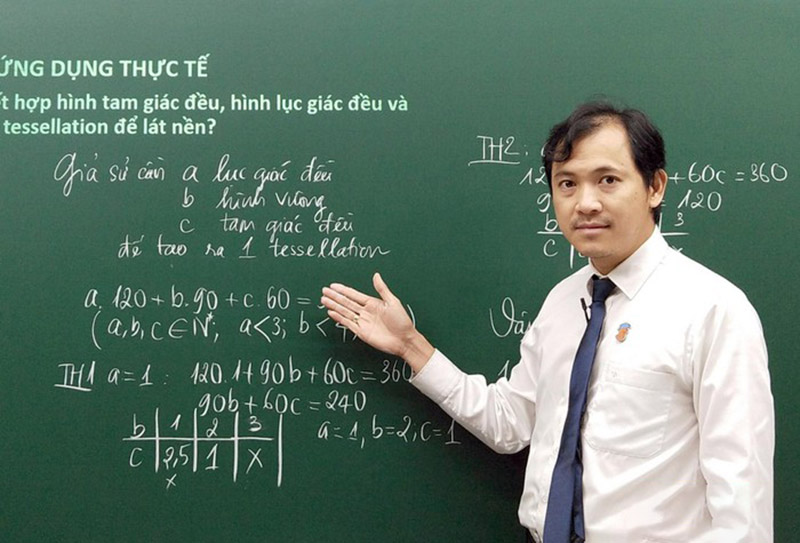 ỨNG DỤNG THỰC TẾ
hợp hình tam giác đều, hình lục giác đều và
tessellation để lát nền?
Giả sử cần a lục giác đều
b hình vuông
c tam giác đều
để tạo ra 1 tessellation
a.120 + b.90 + c.60 =
(a,b,c ∈ N*; a<3; b<4,
TH1 a=1: 120.1+90b+60c=360
90b+60c=240
b | 1 | 2 | 3
c | 2,5 | 1 | x
x
a=1, b=2, c=1
TH2:
+60c=360
=120
b 3
c x